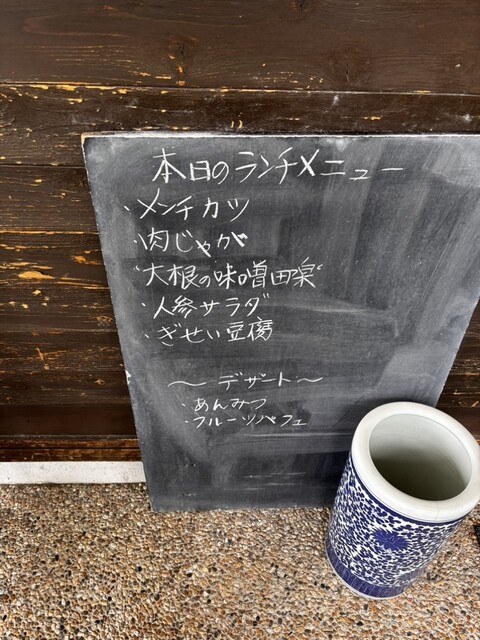 本日のランチメニュー
・メンチカツ
・肉じゃが
・大根の味噌田楽
・人参サラダ
・ぎせい豆腐
～デザート～
・あんみつ
・フルーツパフェ